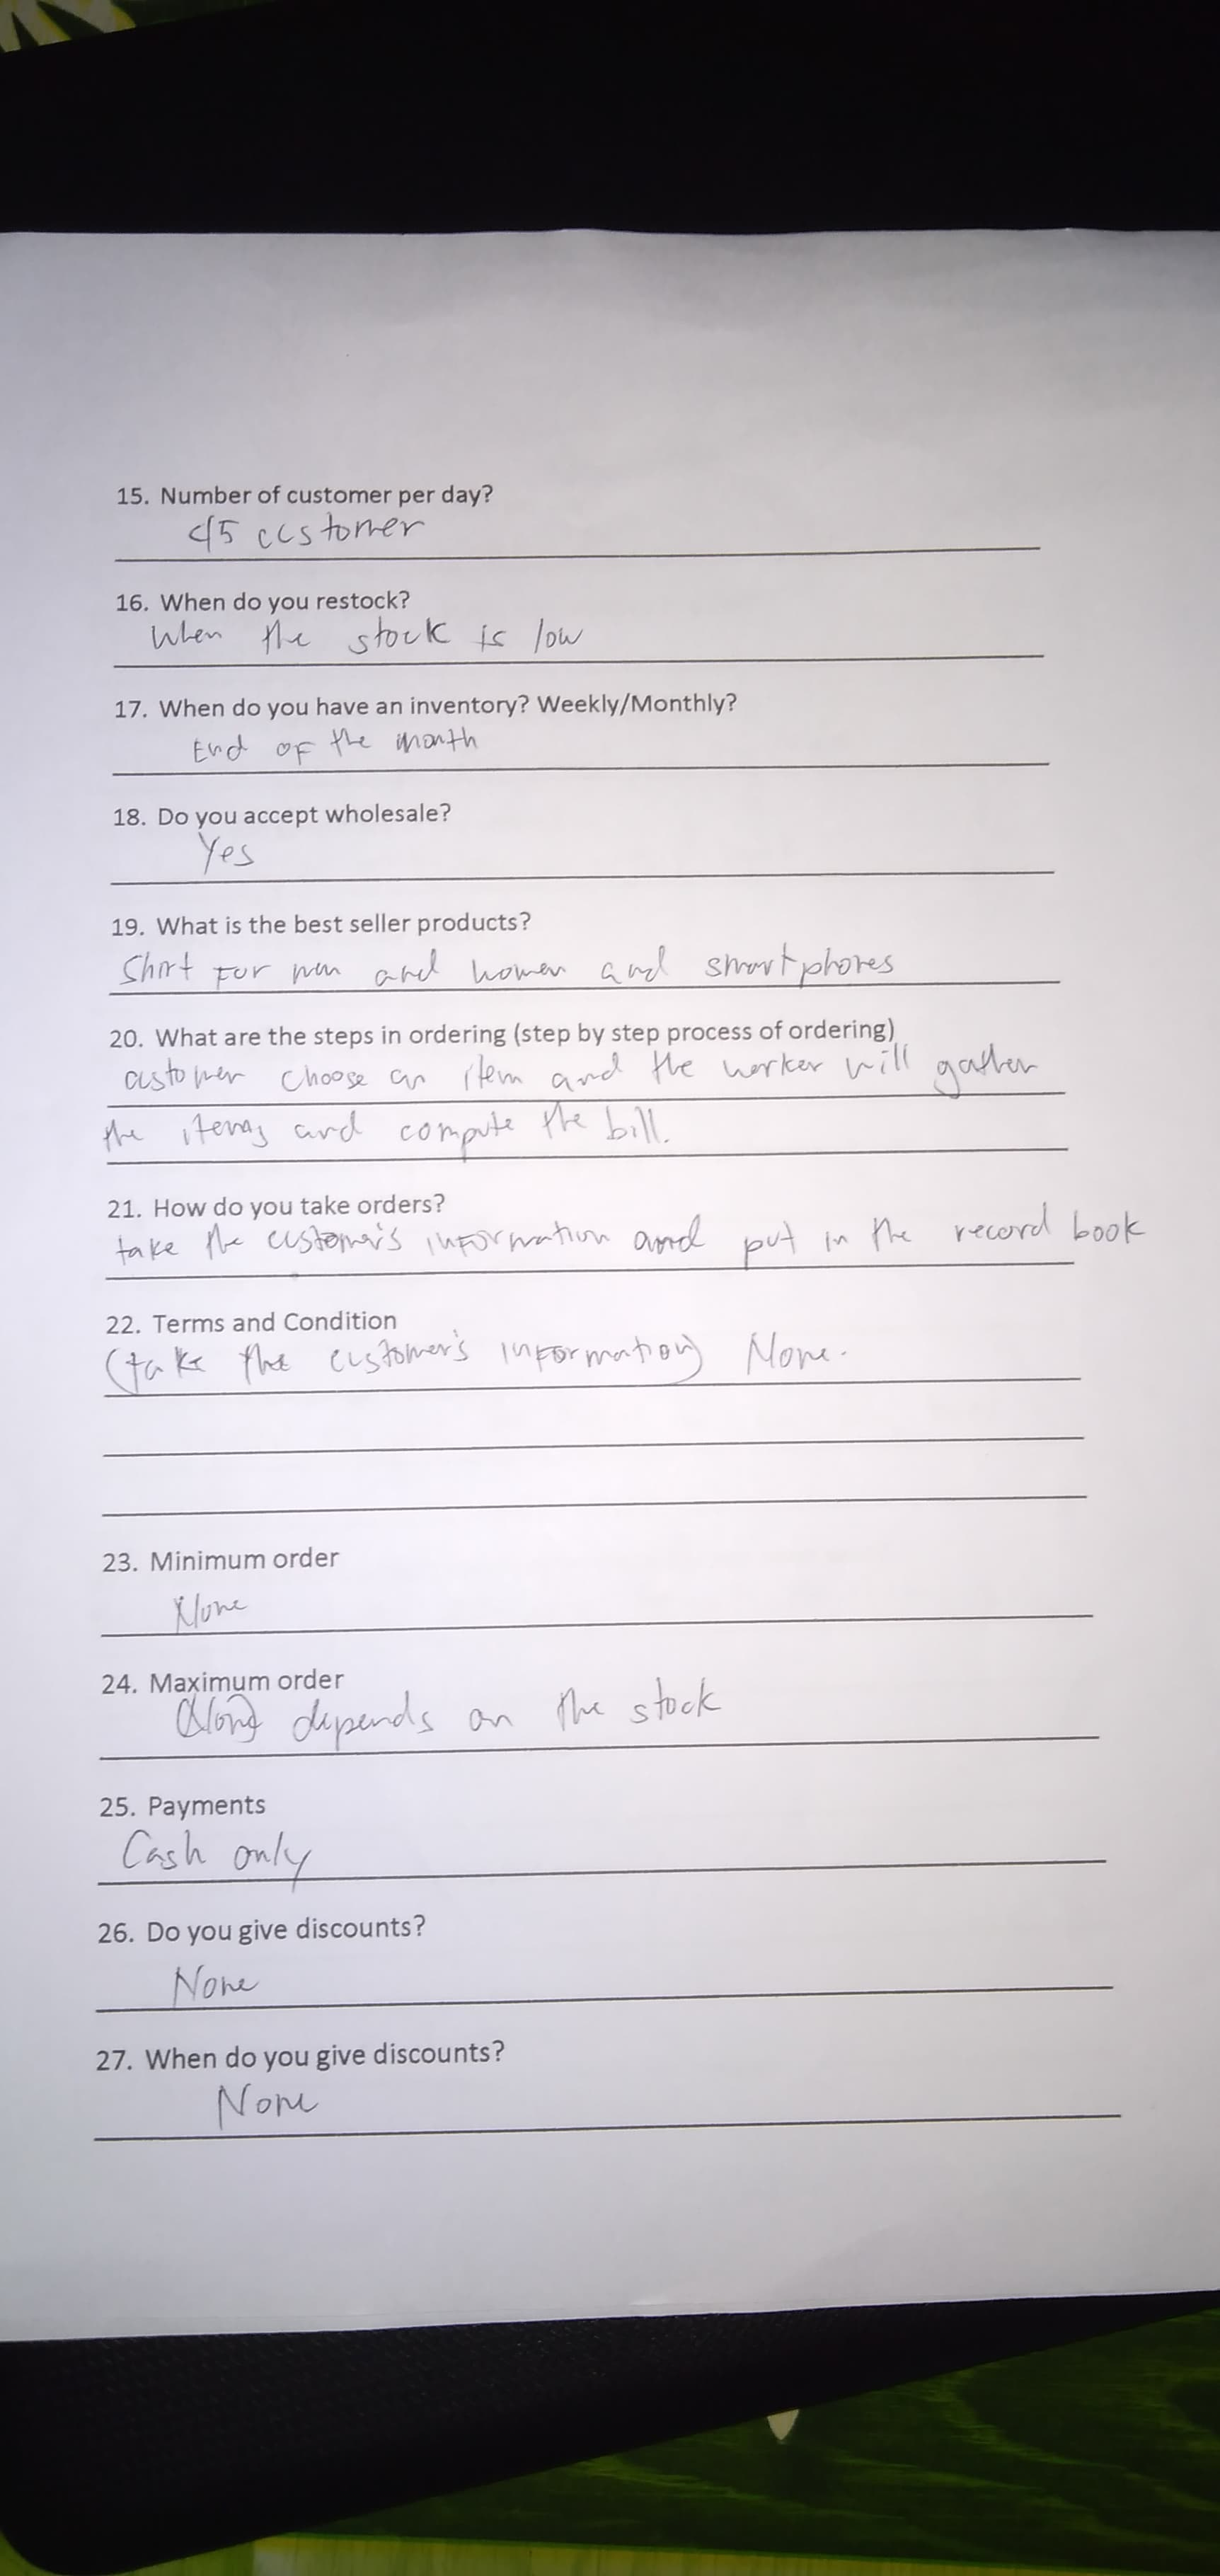 15. Number of customer per day?
45 customer
16. When do you restock?
When the stock is low
17. When do you have an inventory? Weekly/Monthly?
End of the month
18. Do you accept wholesale?
Yes
19. What is the best seller products?
Shirt for men and women and smartphones
20. What are the steps in ordering (step by step process of ordering)
customer choose an item and the worker will gather
the items and compute the bill.
21. How do you take orders?
take the customer's information and put in the record book
22. Terms and Condition
(take the customer's information) None.
23. Minimum order
None
24. Maximum order
(None) depends on the stock
25. Payments
Cash only
26. Do you give discounts?
None
27. When do you give discounts?
None